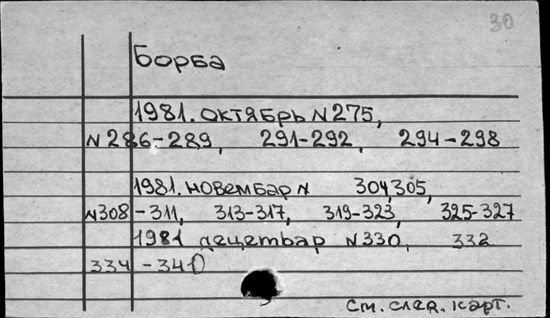 30
Борба
1981. октябрь N 275,
N 286-289, 291-292, 294-298
1981. новембар N 304, 305,
N 308 - 311, 313-317, 319-323, 325-327
1981 децетвар N 330, 332
334 - 340
См. след. карт.